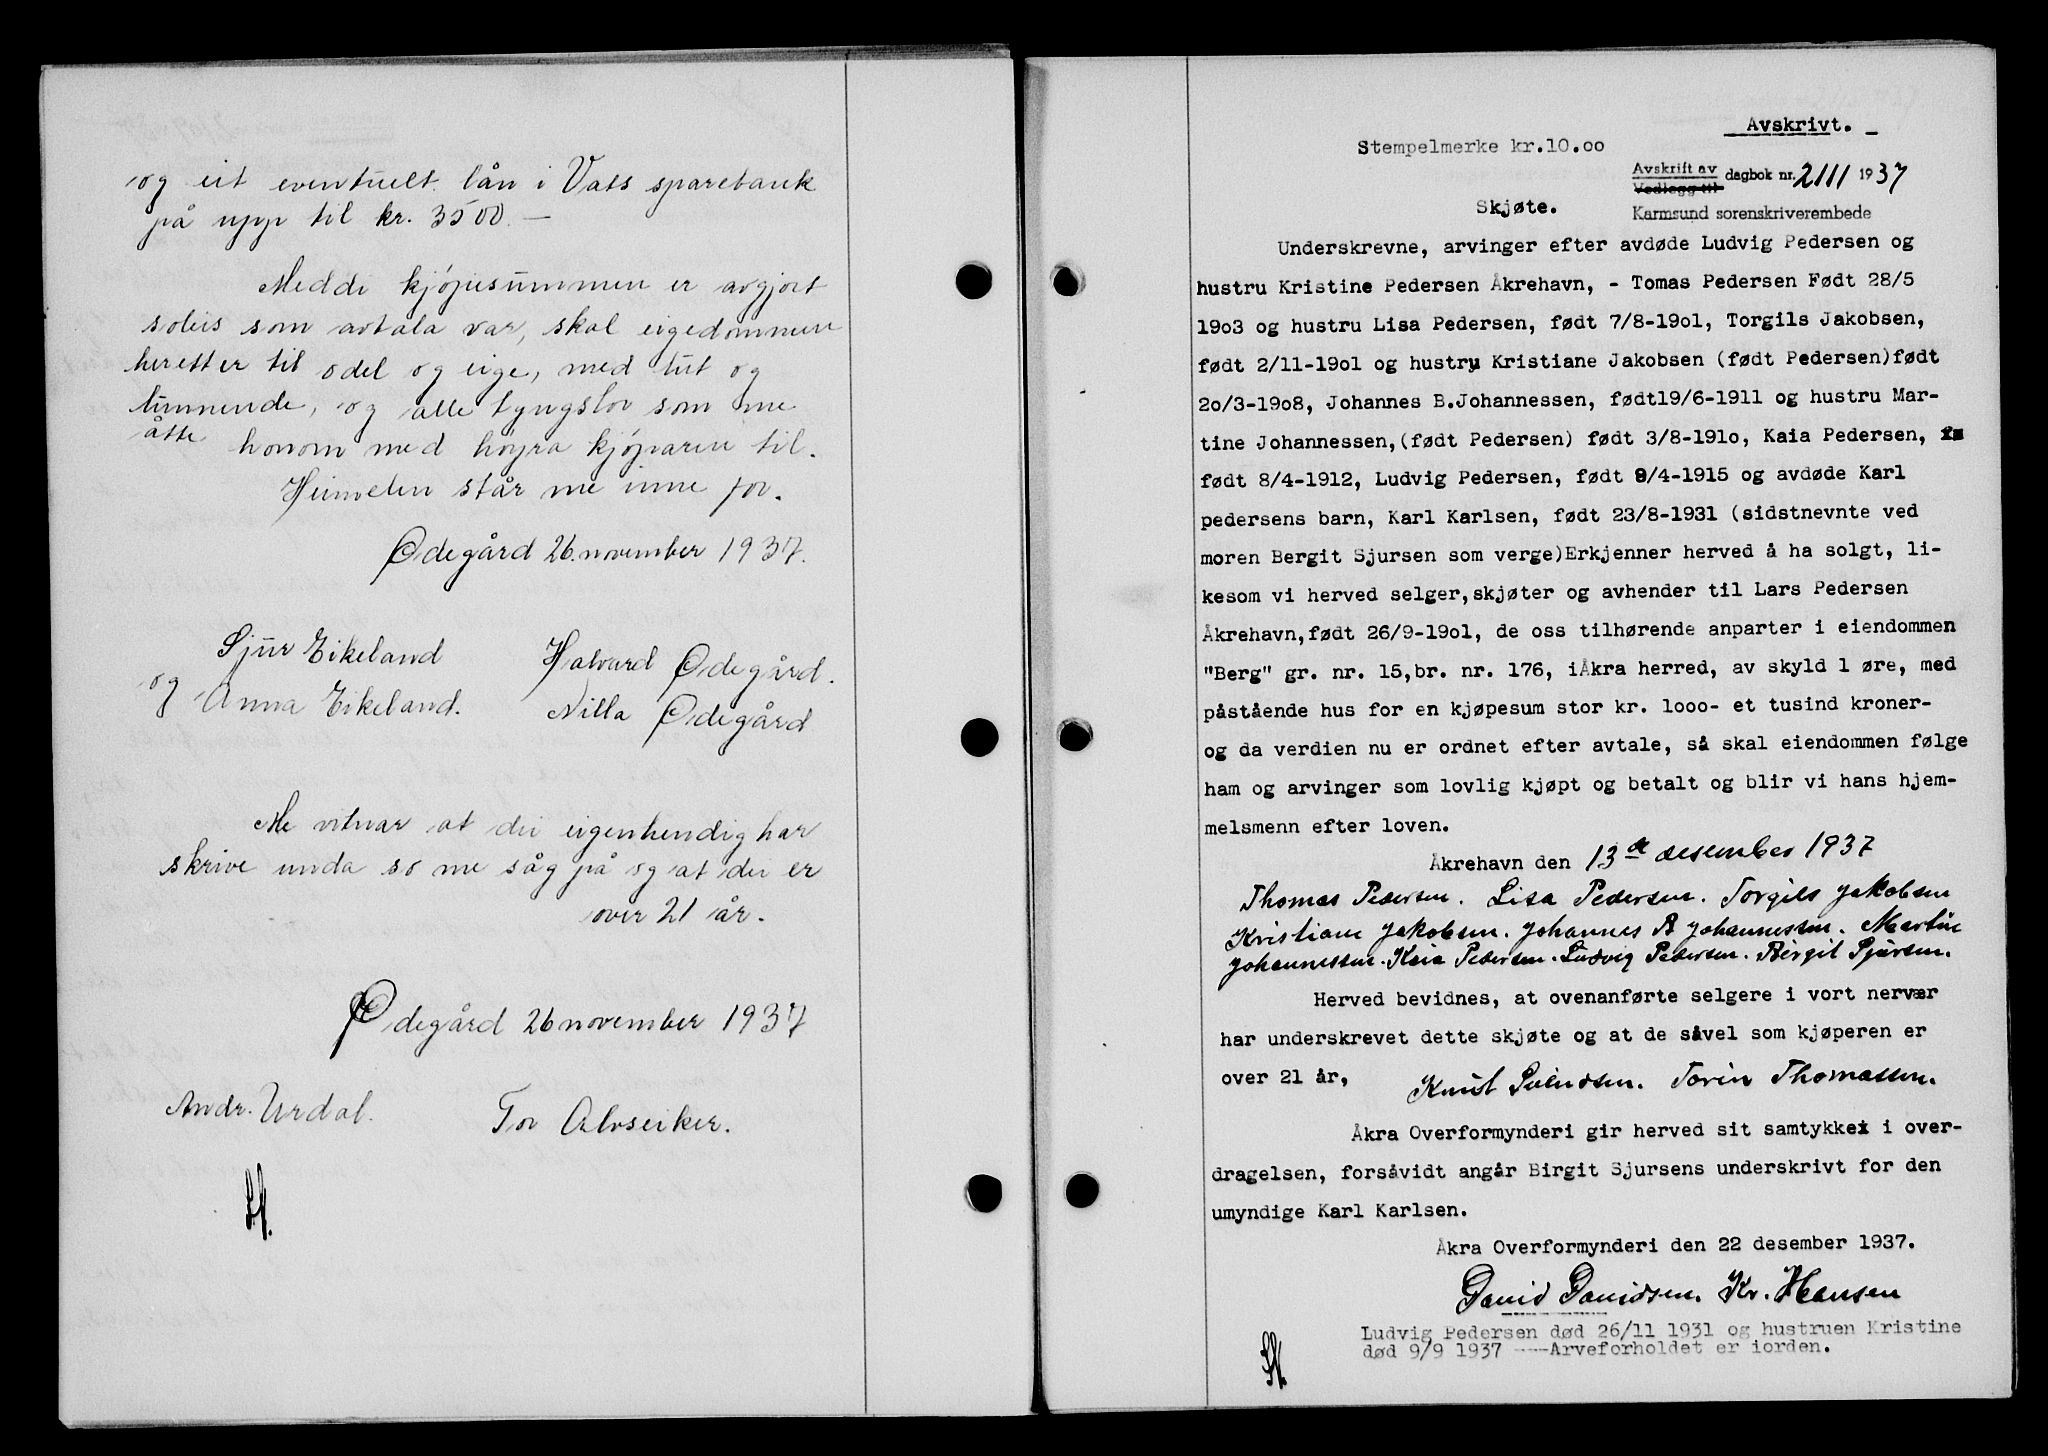 og eit eventuelt lån i Vats sparebank
på upp til kr. 3500.—
Medde kjøpesummen er avgjort
soleis som avtala var, skal eigedommen
heretter til odel og eige, med lut og
lunnende, og alle tyngslor som me
åtte honom med høyra kjøparen til.
Heimelen står me inne for.
Ødegård 26. november 1937.
Sjur Eikeland Halvard Ødegård.
og Anna Eikeland. Nilla Ødegård
Me vitnar at dei eigenhendig har
skrive unda so me såg på og at dei er
over 21 år.
Ødegård 26 november 1937
Andr. Urdal. Tor Alvseiker.
Avskrivt.
Stempelmerke kr.10.oo
Avskrift av
Vedlegg til dagbok nr. 2111 1937
Karmsund sorenskriverembede
Skjøte.
Underskrevne, arvinger efter avdøde Ludvig Pedersen og
hustru Kristine Pedersen Åkrehavn, - Tomas Pedersen Født 28/5
19o3 og hustru Lisa Pedersen, født 7/8-19o1, Torgils Jakobsen,
født 2/11-19o1 og hustru Kristiane Jakobsen (født Pedersen)født
2o/3-19o8, Johannes B.Johannessen, født19/6-1911 og hustru Mar-
tine Johannessen,(født Pedersen) født 3/8-191o, Kaia Pedersen,
født 8/4-1912, Ludvig Pedersen, født 9/4-1915 og avdøde Karl
pedersens barn, Karl Karlsen, født 23/8-1931 (sidstnevnte ved
moren Bergit Sjursen som verge)Erkjenner herved å ha solgt, li-
kesom vi herved selger,skjøter og avhender til Lars Pedersen
Åkrehavn,født 26/9-19o1, de oss tilhørende anparter i eiendommen
"Berg" gr. nr. 15,br. nr. 176, iÅkra herred, av skyld 1 øre, med
påstående hus for en kjøpesum stor kr. 1ooo- et tusind kroner-
og da verdien nu er ordnet efter avtale, så skal eiendommen følge
ham og arvinger som lovlig kjøpt og betalt og blir vi hans hjem-
melsmenn efter loven.
Åkrehavn den 13de desember 1937
Thomas Pedersen. Lisa Pedersen. Torgils Jakobsen
Kristiane Jakobsen. Johannes B Johannessen. Martine
Johannessen. Kaia Pedersen. Ludvig Pedersen. Bergit Sjursen.
Herved bevidnes, at ovenanførte selgere i vort nervær
har underskrevet dette skjøte og at de såvel som kjøperen er
over 21 år, Knut Svendsen. Torin Thomassen.
Åkra Overformynderi gir herved sit samtykke i over-
dragelsen, forsåvidt angår Birgit Sjursens underskrivt for den
umyndige Karl Karlsen.
Åkra Overformynderi den 22 desember 1937.
David Davidsen. Kr. Hansen
Ludvig Pedersen død 26/11 1931 og hustruen Kristine
død 9/9 1937 ---Arveforholdet er iorden.